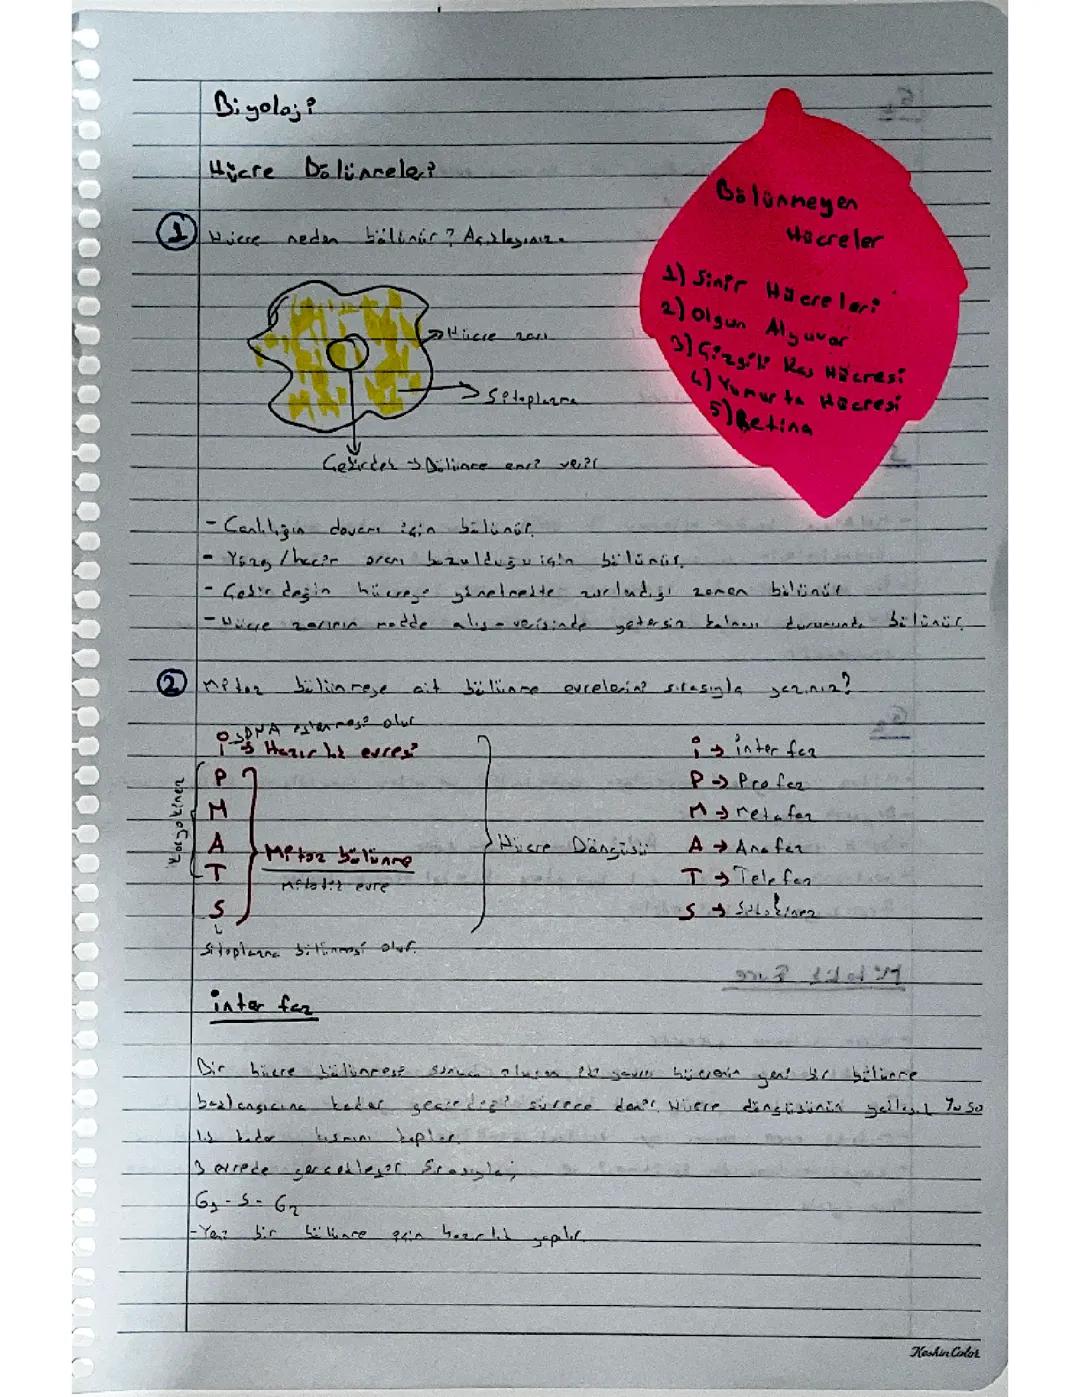 Biyoloji
Hücre Bölünmeleri
Bölünmeyen
Hücreler
1) Sinir Hücreleri
2) Olgun Alyuvar
3) Çizgili Kas Hücresi
4) Yumurta Hücresi
5) Retina
1 Hücre neden bölünür? Açıklayınız.
Hücre zarı
Sitoplazma
Çekirdek → Bölünme emri verir
- Canlılığın devamı için bölünür.
- Yüzey / hacim oranı bozulduğu için bölünür.
- Çekirdeğin hücreyi yönetmekte zorlandığı zaman bölünür
- Hücre zarının madde alış-verişinde yetersiz kalması durumunda bölünür.
2 Mitoz bölünmeye ait bölünme evrelerini sırasıyla yazınız?
→ DNA eşlenmesi olur
i → Hazırlık evresi
P
M
A
T
S
Karyokinez
Mitoz bölünme
Mitotik evre
Hücre Döngüsü
Sitoplazma bölünmesi olur.
i → inter faz
P → Pro faz
M → metafaz
A → Anafaz
T → Telefaz
S → Sitokinez
inter faz
Bir hücre bölünmesi sonucu oluşan iki yavru hücrenin yeni bir bölünme
başlangıcına kadar geçirdiği sürece denir. Hücre döngüsünün yaklaşık %90
lık kadar kısmını kaplar.
3 evrede gerçekleşir. Sırasıyla;
G1 - S - G2
- Yeni bir bölünme için hazırlık yapılır.
KeskinColor